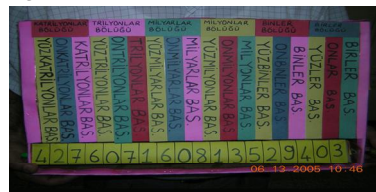 KATRİLYONLAR BÖLÜĞÜ
TRİLYONLAR BÖLÜĞÜ
MİLYARLAR BÖLÜĞÜ
MİLYONLAR BÖLÜĞÜ
BİNLER BÖLÜĞÜ
BİRLER BÖLÜĞÜ
YÜZKATRİLYONLAR BAS.
ONKATRİLYONLAR BAS.
KATRİLYONLAR BAS.
YÜZTRİLYONLAR BAS.
ONTRİLYONLAR BAS.
TRİLYONLAR BAS.
YÜZMİLYARLAR BAS.
ONMİLYARLAR BAS.
MİLYARLAR BAS.
YÜZMİLYONLAR BAS.
ONMİLYONLAR BAS.
MİLYONLAR BAS.
YÜZBİNLER BAS.
ONBİNLER BAS.
BİNLER BAS.
YÜZLER BAS.
ONLAR BAS.
BİRLER BAS.
427607160813529403
06.13.2005 10:46